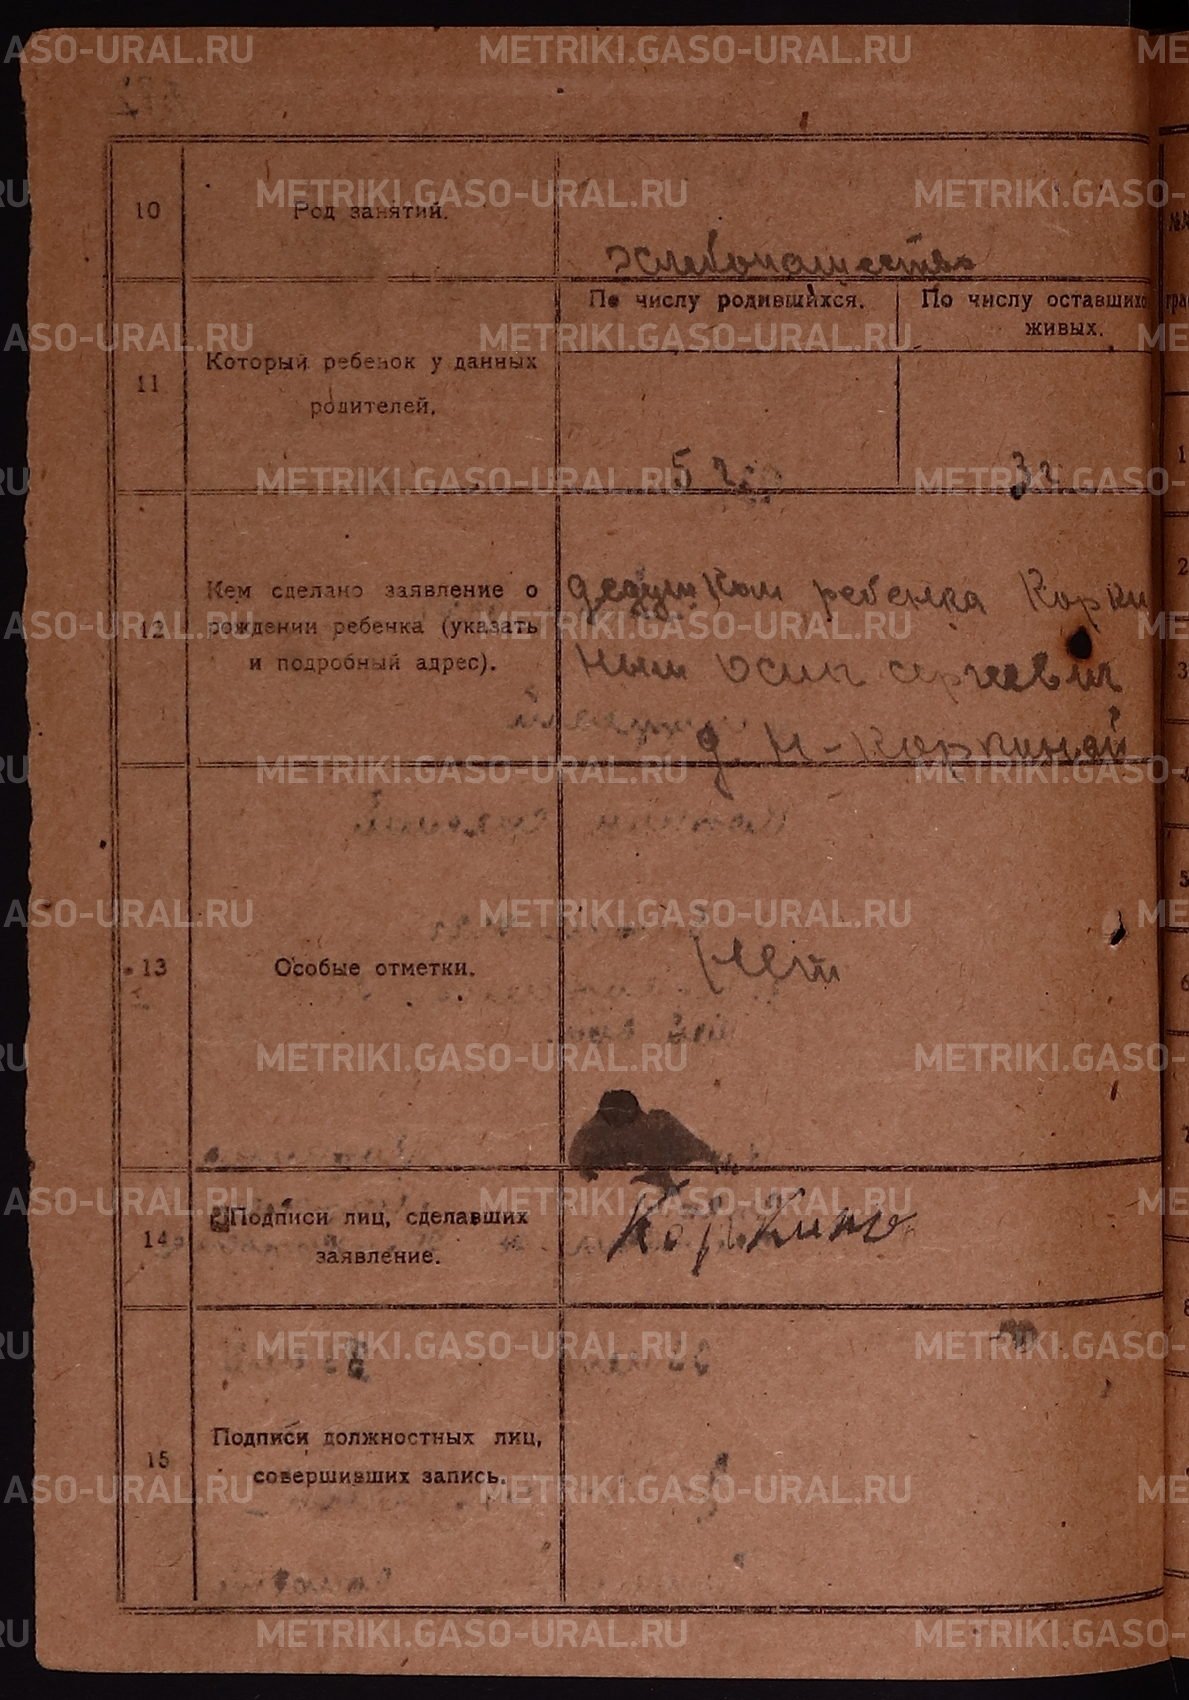 10
Род занятий.
Хлебопашество
11
Который ребенок у данных
родителей.
По числу родившихся.
По числу оставших
живых.
5
3
12
Кем сделано заявление о
рождении ребенка (указать
и подробный адрес).
дедушком ребенка Корки
ным Осип сергеевич
д. Н-Коркиной
13
Особые отметки.
Нет
14
Подписи лиц, сделавших
заявление.
Коркинъ
15
Подписи должностных лиц,
совершивших запись.
METRIKI.GASO-URAL.RU